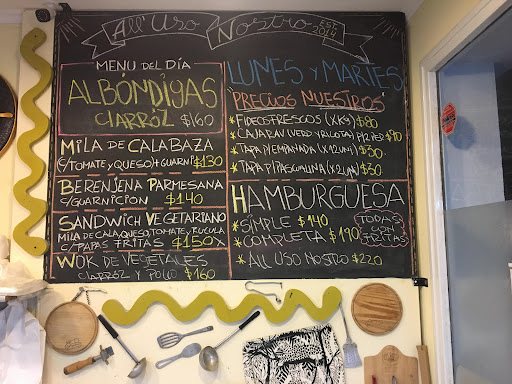 All' Uso Nostro
EST 2014
MENU DEL DÍA
ALBÓNDIGAS
C/ARRÓZ $160
MILA DE CALABAZA
C/TOMATE Y QUESO + GUARNI $130
BERENJENA PARMESANA
C/GUARNICION $140
SANDWICH VEGETARIANO
MILA DE CALA, QUESO, TOMATE, RUCULA
C/PAPAS FRITAS $150
WOK DE VEGETALES
C/ARRÓZ Y POLLO $160
LUNES Y MARTES
"PRECIOS NUESTROS
*FIDEOS FRESCOS (X KG) $80
*CAJA RAV (VERD Y RICOTA) $90
*TAPA P/EMPANADA (X 12 UNI) $30
*TAPA P/PASCUALINA (X 2 UNI) $30
HAMBURGUESA
*SIMPLE $140
*COMPLETA $190
*ALL USO NOSTRO $220
TODAS
CON
FRITAS